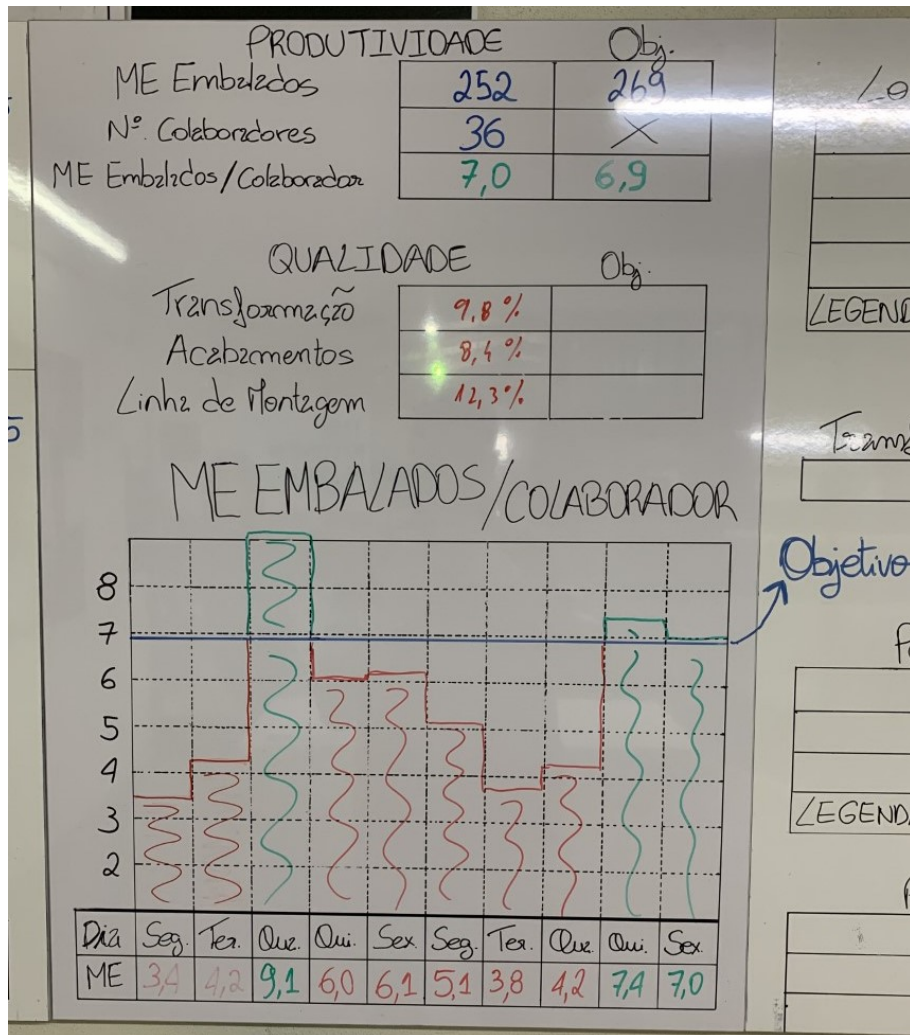 PRODUTIVIDADE Obj.
ME Embalados 252 269
Nº. Colaboradores 36 X
ME Embalados/Colaborador 7,0 6,9
QUALIDADE Obj.
Transformação 9,8 %
Acabamentos 8,4 %
Linha de Montagem 12,3%
LEGEND
ME EMBALADOS/COLABORADOR
Objetivo
8
7
6
5
4
3
2
LEGEND
Dia Seg. Ter. Qua. Qui. Sex. Seg. Ter. Qua. Qui. Sex
ME 3,4 4,2 9,1 6,0 6,1 5,1 3,8 4,2 7,4 7,0